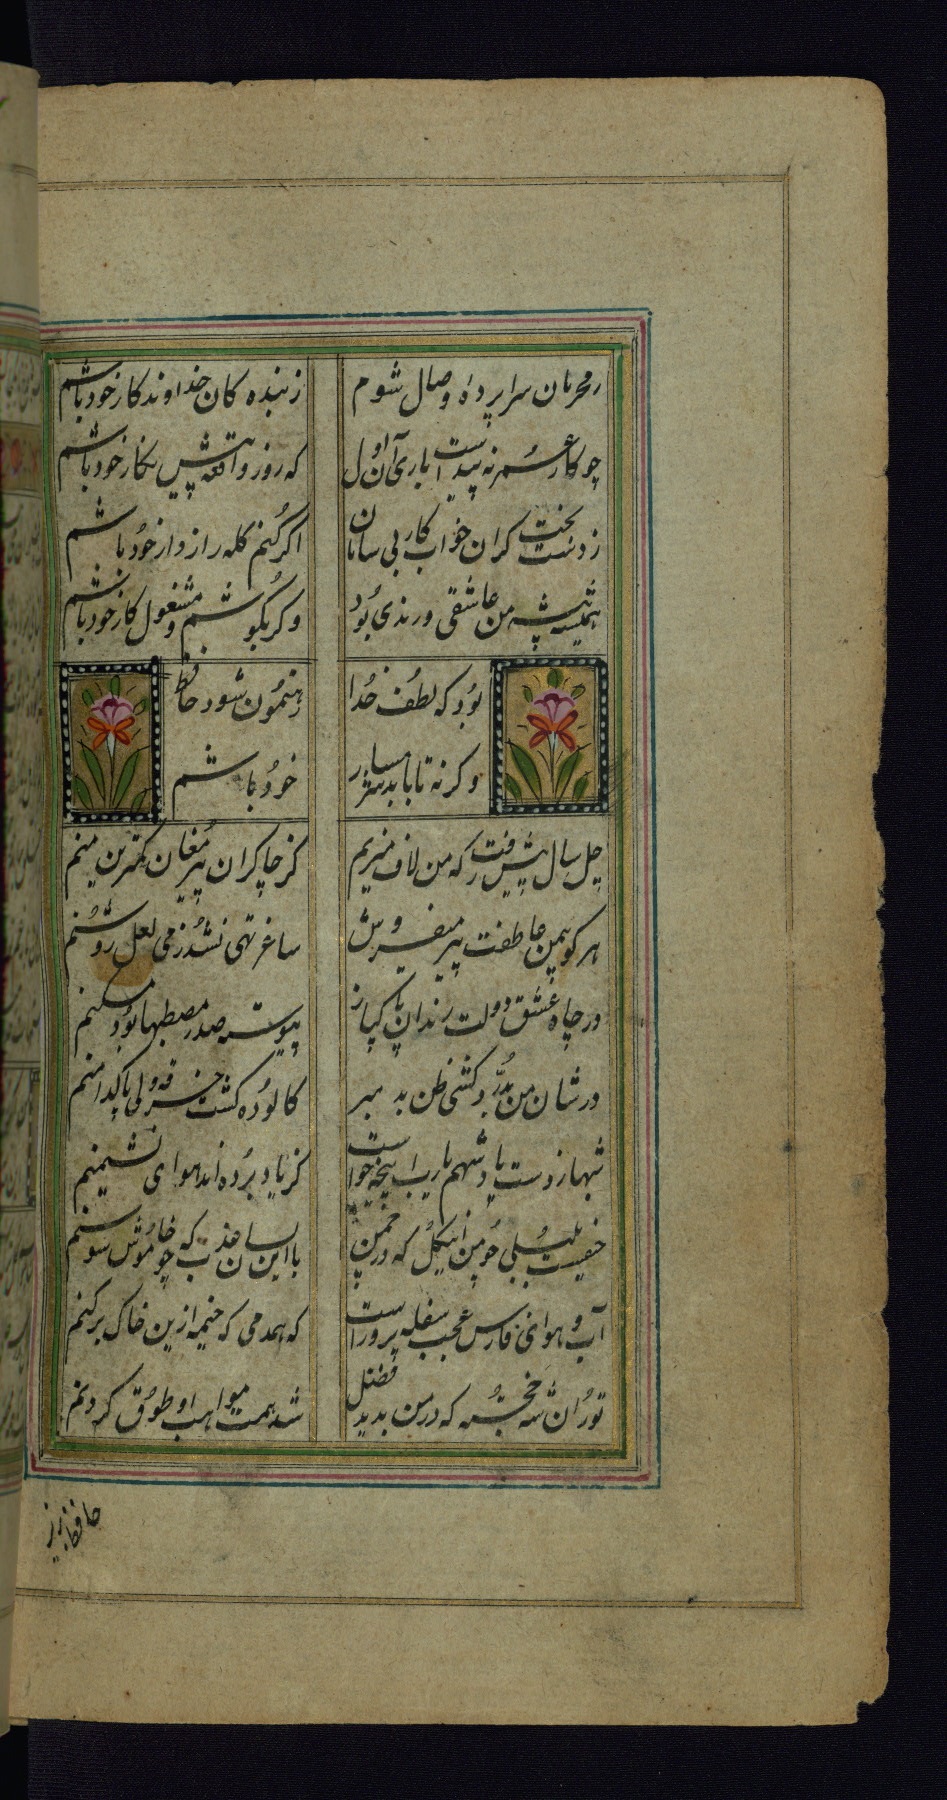 ز محرمان سراپرده وصال شوم ز بنده کان خداوند کار خود باشم
چو کار عمر نه پیداست باری آن اول که روز واقعه پیش نکار خود باشم
ز دست بخت کران خواب کار بی سامان اکر کنم کله راز دار خود باشم
همیشه پیشه من عاشقی و رندی بود وکر بکوشم و مشغول کار خود باشم
بود که لطف خدا رهنمون شود حافظ
وکرنه تا بابد شرمسار خود باشم
چل سال پیش رفت که من لاف میزنم کز چاکران پیر مغان کمترین منم
هرکو بیمن عاطفت پیر میفروش ساغر تهی نشد ز می لعل روشنم
در جاه عشق و دولت رندان پاکباز پیوسته صدر مصطبها بود مسکنم
در شان من بدرد کشی ظن بد مبر کالوده کشت خرقه ولی پاکدامنم
شهباز دست پادشهم یارب این چه جواست کز یاد برده اند هوای نشیمنم
حیفست بلبلی چو من از کل که در چمن با این لسان عذب که چو خاموش سوسنم
آب و هوای فارس عجب سفله پرور است کو همدمی که خیمه ازین خاک برکنم
توران شه خجسته که در من یزید فضل شد همت مواهب او طوق کردنم
حافظ بزیر